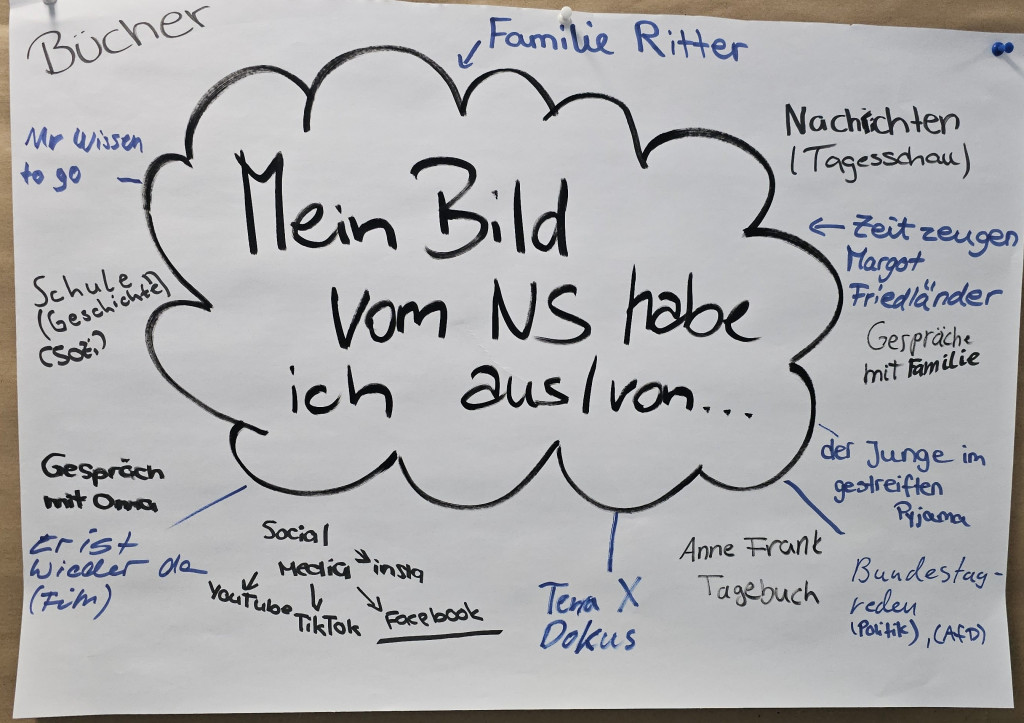 Bücher
Familie Ritter
Mr Wissen
to go
Nachrichten
(Tagesschau)
Mein Bild
vom NS habe
ich aus/von...
Zeitzeugen
Margot
Friedländer
Schule
(Geschichte)
(Soz.)
Gespräche
mit Familie
der Junge im
gestreiften
Pyjama
Gespräch
mit Oma
Er ist
wieder da
(Film)
Social
Media
insta
YouTube
TikTok
Facebook
Terra X
Dokus
Anne Frank
Tagebuch
Bundestag-
reden
(Politik), (AfD)